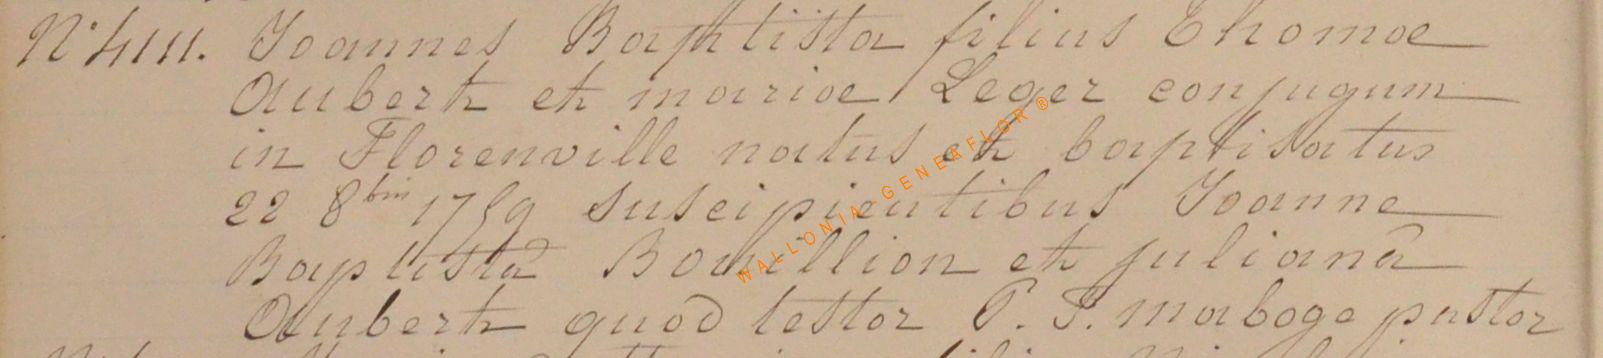 N° 411. Joannes Baptista filius Thomae
Aubert et mariae Leger conjugum
in Florenville natus et baptisatus
22 8bris 1759 suscipientibus Joanne
Baptistâ Bouillion et julianâ
Aubert quod testor P. P. maboge pastor
WALLONIA-GENEAFLOR ®